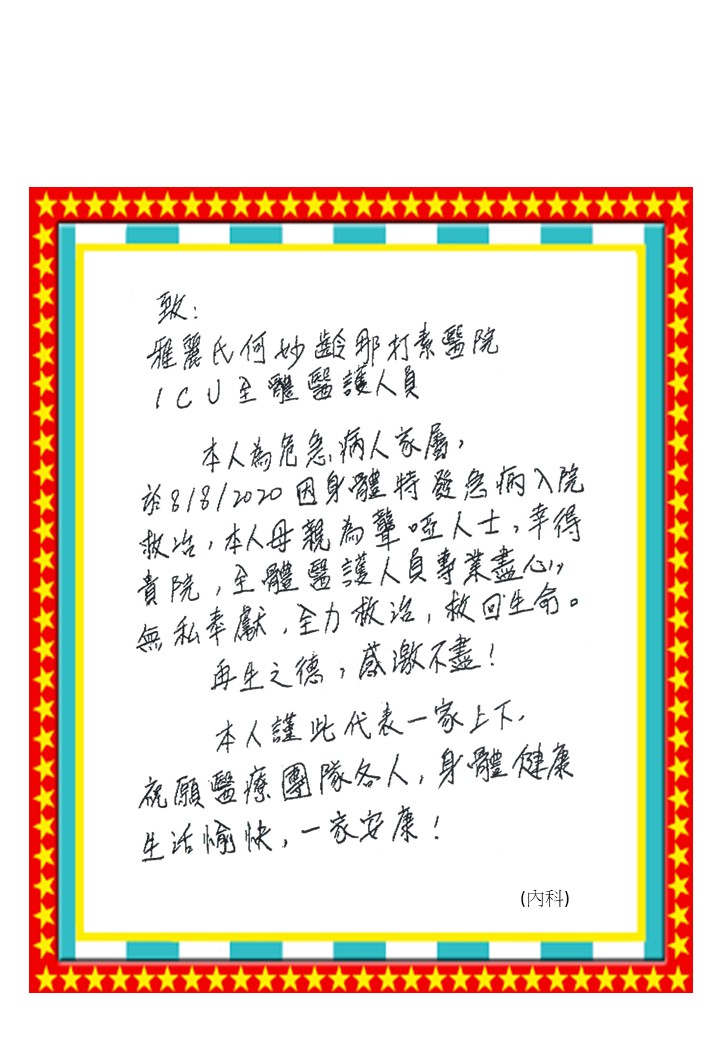 致：
雅麗氏何妙齡那打素醫院
ICU全體醫護人員
本人為危急病人家屬，
於8/8/2020因身體特發急病入院
救治，本人母親為聾啞人士，幸得
貴院，全體醫護人員專業盡心，
無私奉獻，全力救治，救回生命。
再生之德，感激不盡！
本人謹此代表一家上下，
祝願醫療團隊各人，身體健康
生活愉快，一家安康！
(內科)